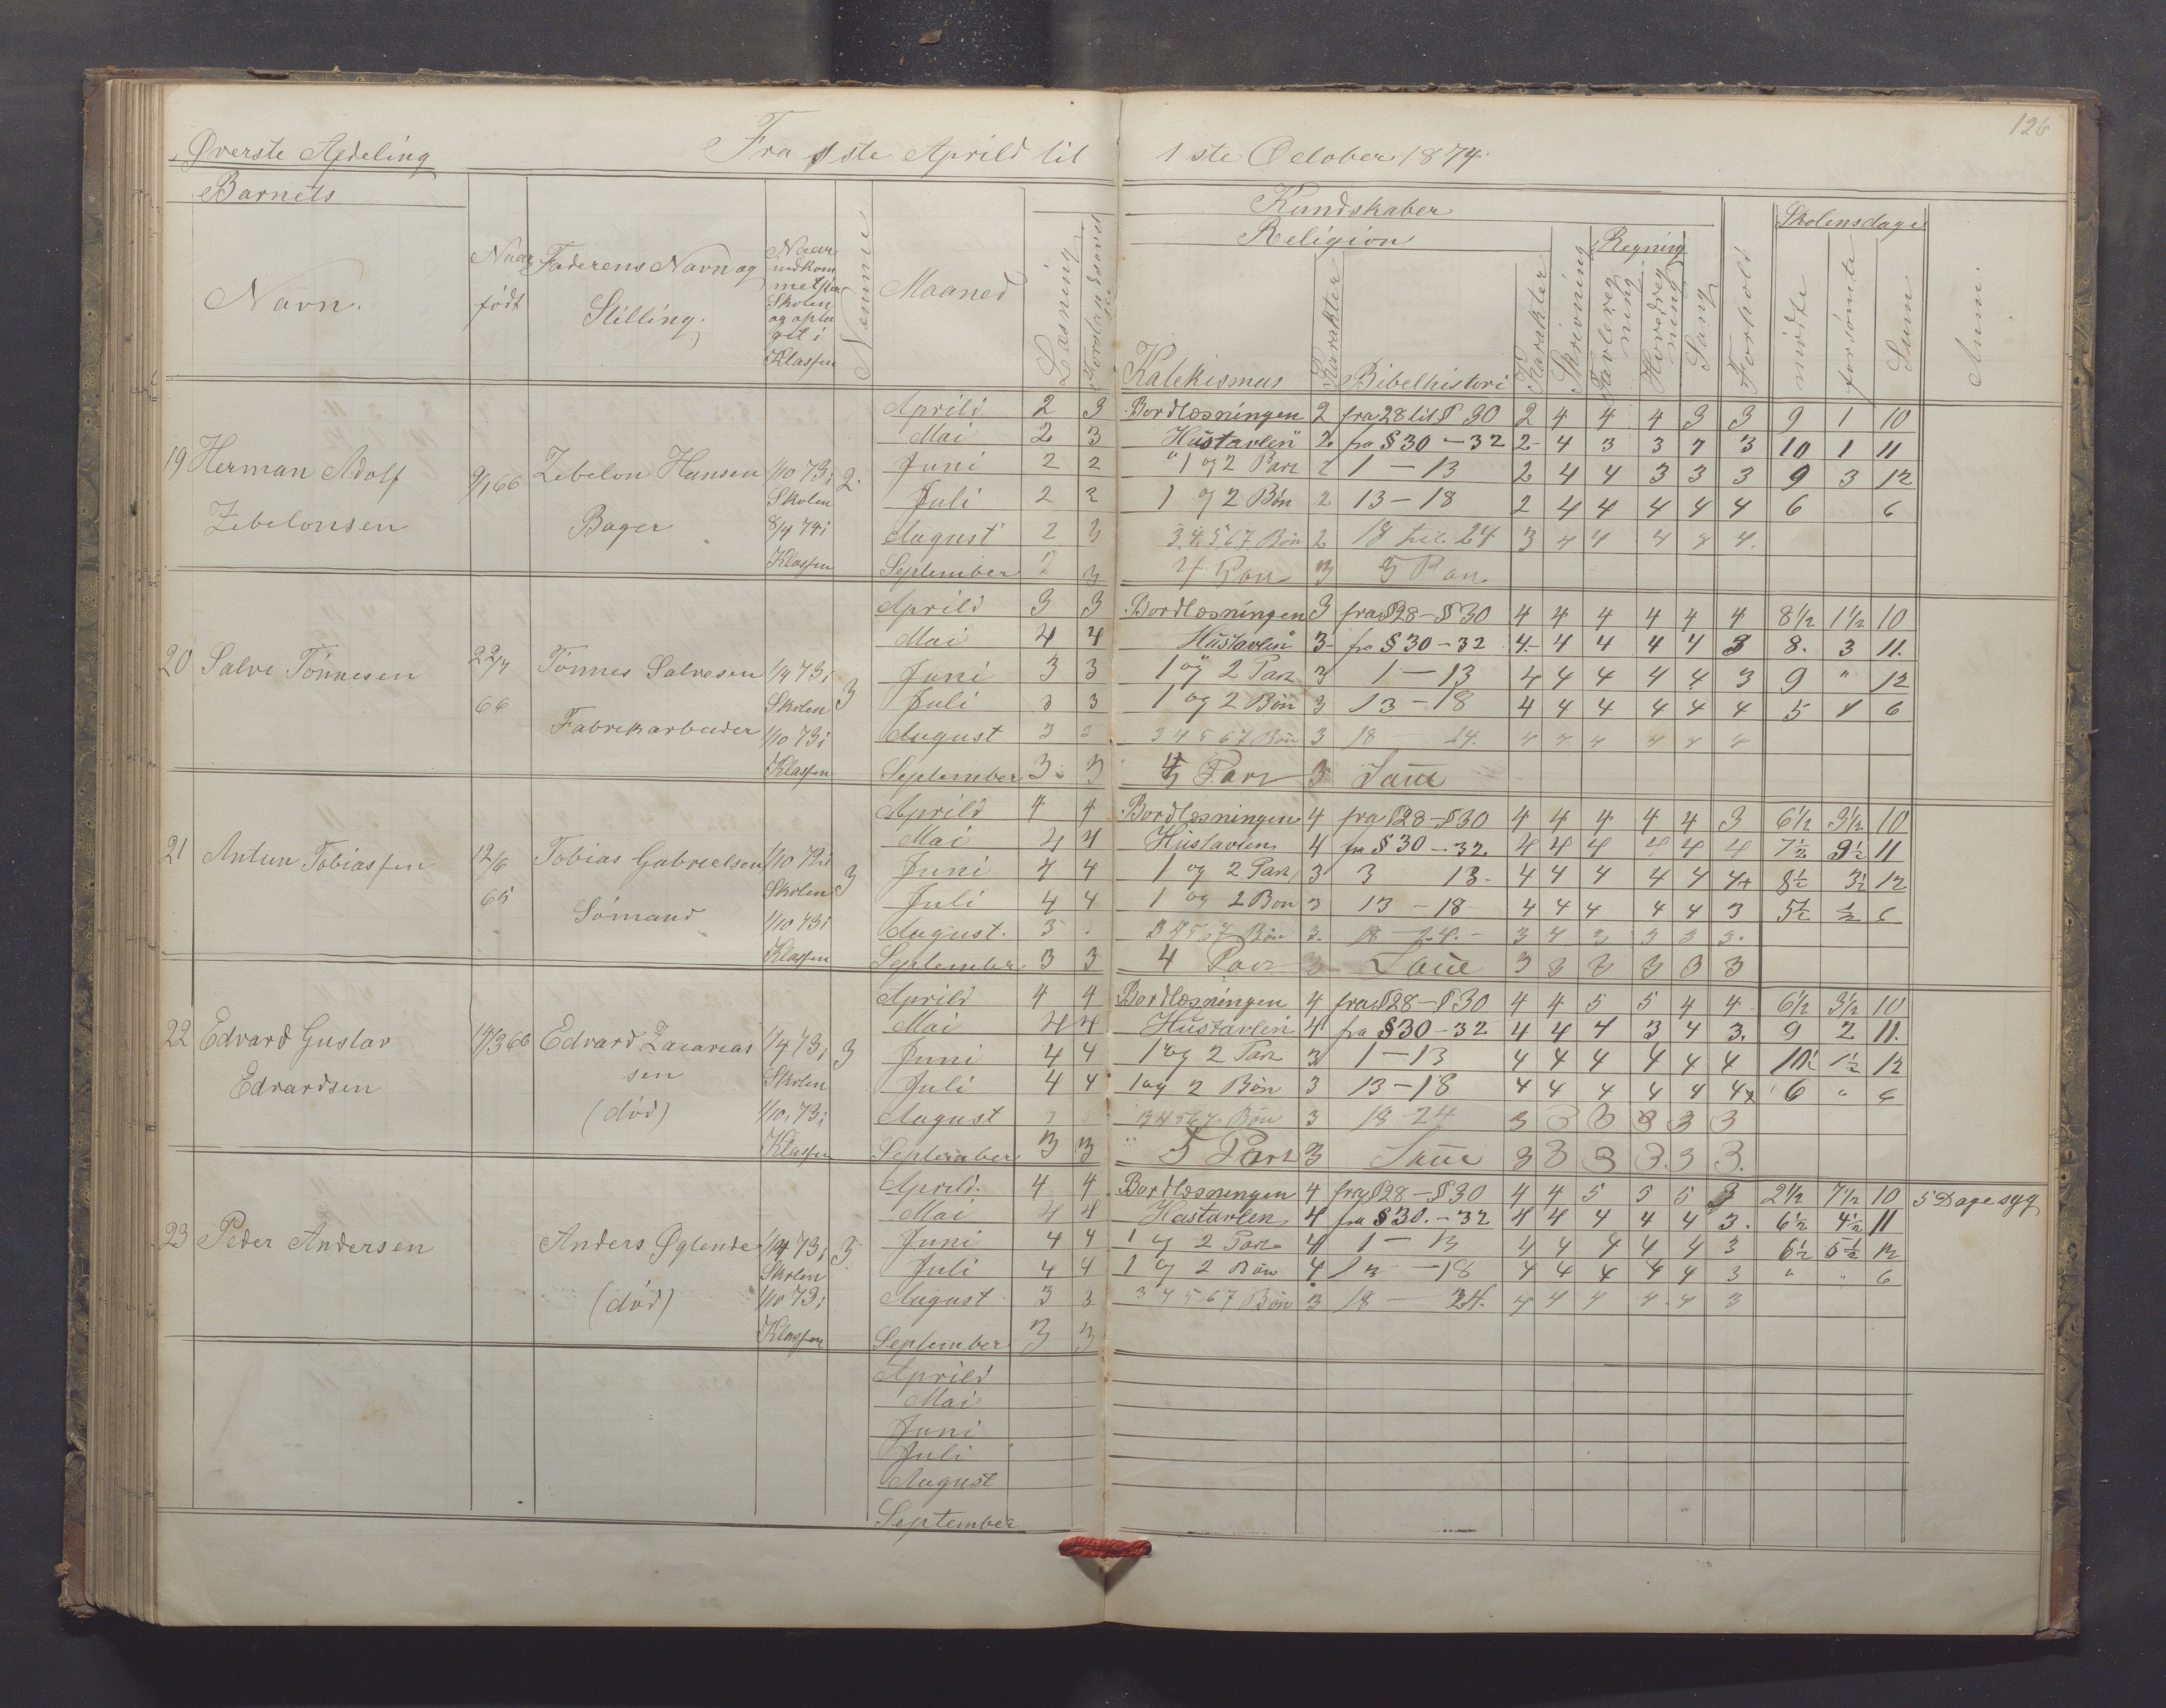 126
Øverste Afdeling Fra 1ste Aprild til 1ste October 1874.
Barnets Kundskaber Skolensdage
Religion Regning
Navn. Naar født Faderens Navn og Stilling. Naar indkommet i Skolen og optaget i Klassen Nemme Maaned Læsning Forstandsøvelse Katekismus Karakter Bibelhistori Karakter Skrivning Tavleregning Hovedregning Sang Forhold mødte forsømte Sum Anm.
19 Herman Adolf Zebelonsen 9/1 66 Zebelon Hansen Bager 1/10 73 i Skolen 8/4 74 i Klassen 2.
Aprild 2 3 Bordlæsningen 2 fra 28 til § 30 2 4 4 4 3 3 9 1 10
Mai 2 3 Hustavlen 2 fra § 30 – 32 2 4 3 3 4 3 10 1 11
Juni 2 2 1 og 2 Part 2 1 – 13 2 4 4 3 3 3 9 3 12
Juli 2 2 1 og 2 Bøn 2 13 – 18 2 4 4 4 4 4 6 6
August 2 3 3.4.5.6.7 Bøn 2 18 til 24 3 4 4 4 4 4.
September 2 3 4 Part 3 5 Part
20 Salve Tønnesen 22/7 66 Tønnes Salvesen Fabrikarbeider 1/4 73 i Skolen 1/10 73 i Klassen 3
Aprild 3 3 Bordlæsningen 3 fra § 28 – § 30 4 4 4 4 4 4 8 1/2 1 1/2 10
Mai 4 4 Hustavlen 3 fra § 30 – 32 4 4 4 4 4 3 8. 3 11.
Juni 3 3 1 og 2 Part 3 1 – 13 4 4 4 4 4 3 9 " 12
Juli 3 3 1 og 2 Bøn 3 13 – 18 4 4 4 4 4 4 5 1 6
August 3 3 3 4 5 6 7 Bøn 3 18 24. 4 4 4 4 4 4
September 3 3 Part 3 Same
21 Antun Tobiassen 12/6 65 Tobias Gabrielsen Sømand 1/10 72 i Skolen 1/10 73 i Klassen 3
Aprild 4 4 Bordlæsningen 4 fra § 28 – § 30 4 4 4 4 4 3 6 1/2 3 1/2 10
Mai 4 4 Hustavlen 4 fra § 30 – 32. 4 4 4 4 4 4 7 1/2 3 1/2 11
Juni 4 4 1 og 2 Part 3 3 13 4 4 4 4 4 4+ 8 1/2 3 1/2 12
Juli 4 4 1 og 2 Bøn 3 13 – 18 4 4 4 4 4 3 5 1/2 1/2 6
August. 3 3 4 5 6 7 Bøn 3. 18 – 24. 3 4 3 3 3 3.
September 3 3 4 Part 3 Same 3 3 3 3 3 3
22 Edvard Gustav Edvardsen 14/3 66 Edvard Zacariassen (død) 1/4 73 i Skolen 1/10 73 i Klassen 3
Aprild 4 4 Bordlæsningen 4 fra § 28 – § 30 4 4 5 5 4 4 6 1/2 3 1/2 10
Mai 4 4 Hustavlen 4 fra § 30 – 32 4 4 4 3 4 3. 9 2 11.
Juni 4 4 1 og 2 Part 3 1 – 13 4 4 4 4 4 4 10 1/2 1 1/2 12
Juli 4 4 1 og 2 Bøn 3 13 – 18 4 4 4 4 4 4x 6 " 6
August 3 4 5 6 7 Bøn 3 18 24 3 3 3 3 3 3
September 3 3 5 Part 3 Same 3 3 3 3. 3 3.
23 Peder Andersen Anders Øglende (død) 1/4 73 i Skolen 1/10 73 i Klassen 3
Aprild. 4 4 Bordlæsningen 4 fra § 28 – § 30 4 4 5 5 5 3 2 1/2 7 1/2 10 5 Dage syg
Mai 4 4 Hustavlen 4 fra § 30. – 32 4 4 4 4 4 3. 6 1/2 4 1/2 11
Juni 4 4 1 og 2 Part 4 1 – 13 4 4 4 4 4 3 6 1/2 5 1/2 12
Juli 4 4 1 og 2 Bøn 4 13 – 18 4 4 4 4 4 3 " " 6
August 3 3 3 4 5 6 7 Bøn 3 18 – 24. 4 4 4 4 4 3
September 3 3
Aprild
Mai
Juni
Juli
August
September